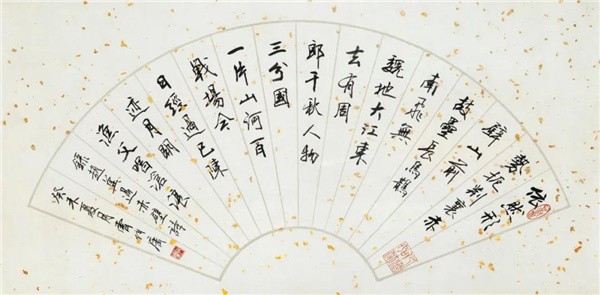 依然形
勢扼荊襄赤
壁山前
故壘長烏鵲
南飛無
魏地大江東
去有周
郎千秋人物
三分國
一片山河百
戰場今
日經過已陳
迹月明
漁父唱滄浪
錄趙翼過赤壁詩
癸未夏月